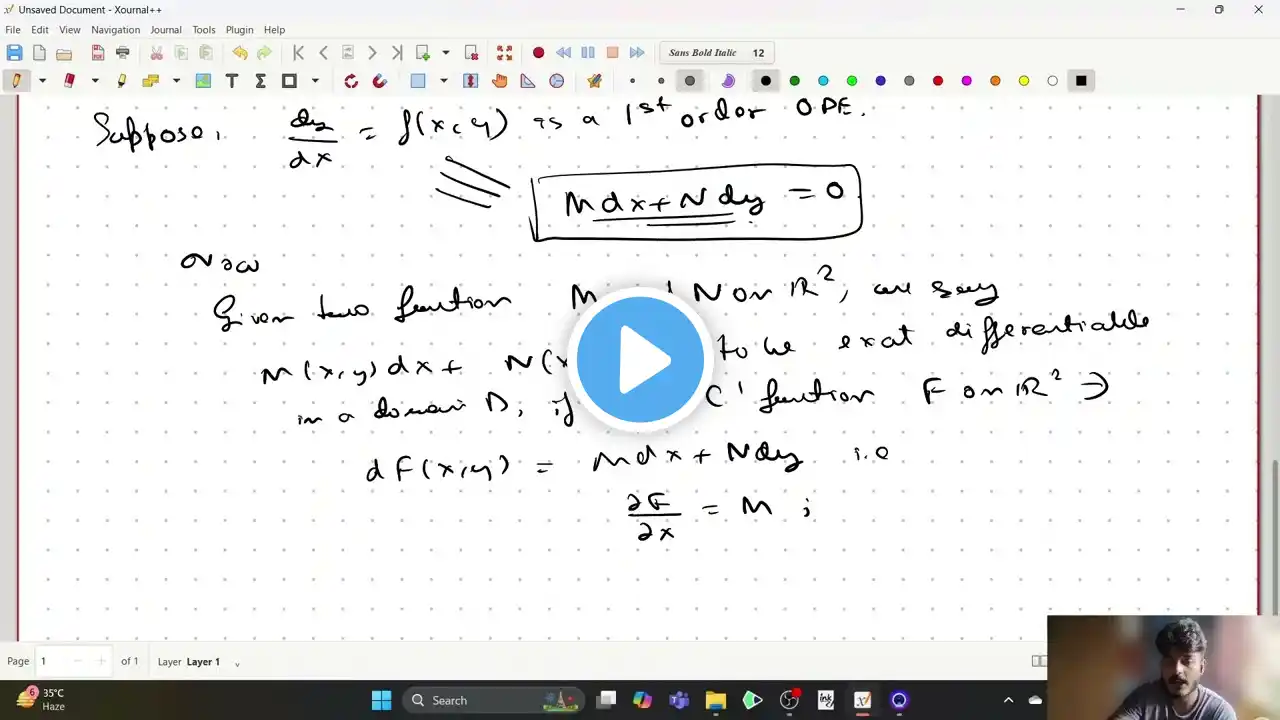 Unsaved Document - Xournal++
File Edit View Navigation Journal Tools Plugin Help
Sans Bold Italic 12
Suppose, dy/dx = f(x,y) is a 1st order ODE.
Mdx+Ndy = 0
Now
Given two function M N on R², we say
M(x,y)dx+ N(x to be exat differentiable
in a domain D, if C¹ function F on R² ∋
dF(x,y) = Mdx+Ndy i.e
∂F/∂x = M ;
Page 1 of 1 Layer Layer 1
6
35°C
Haze
Search